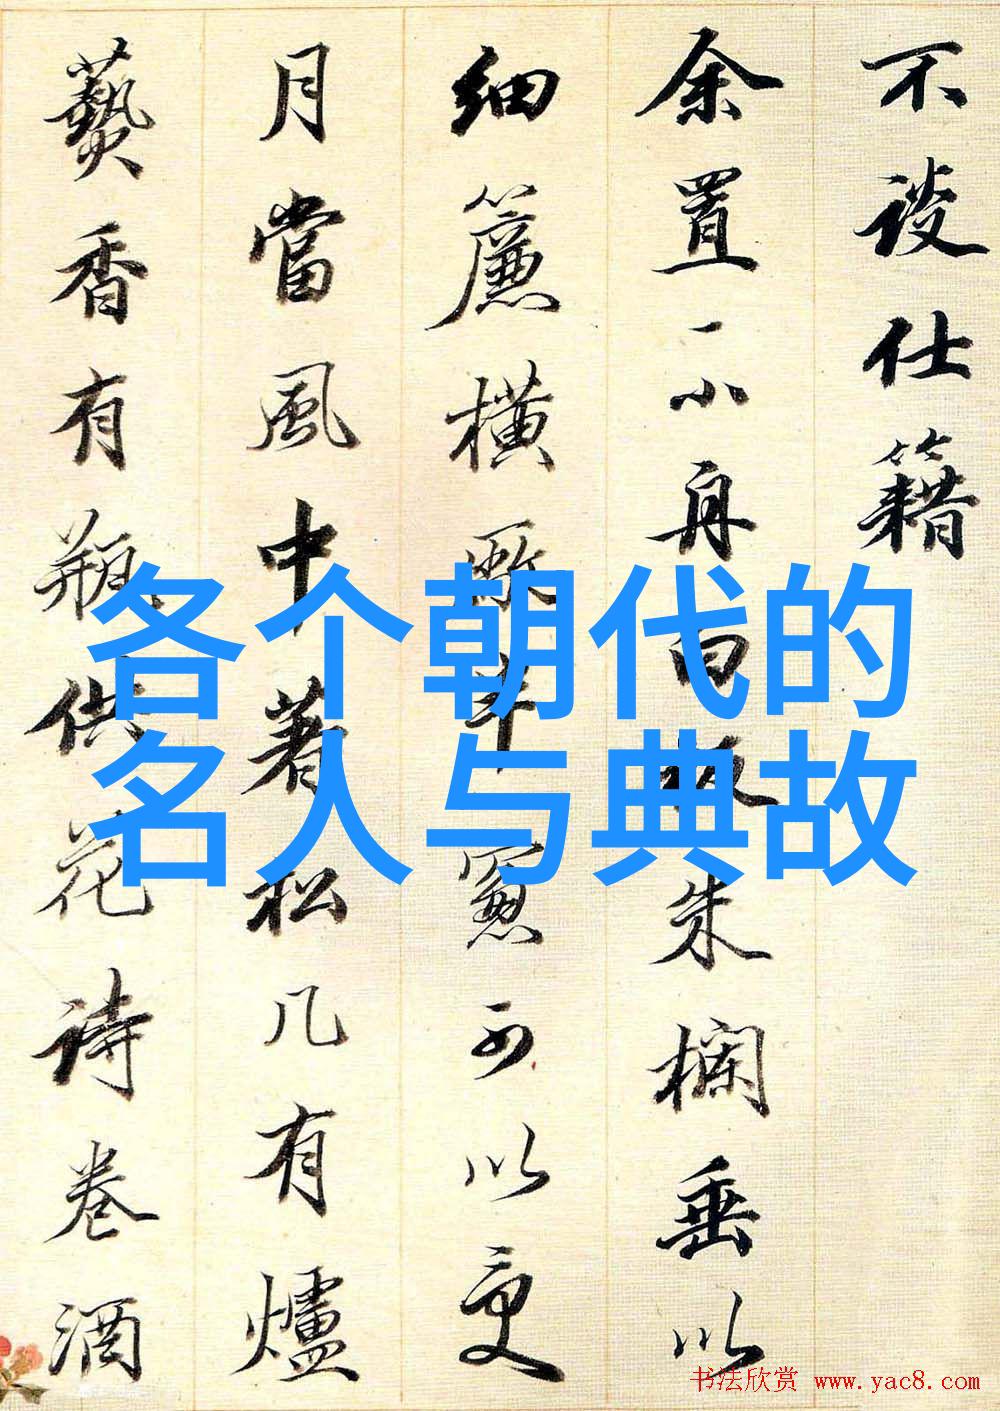 不談仕籍
余置一小舟白板朱欄垂以
細簾橫半窻可以受
月當風中著松几有爐
爇香有瓶供花詩卷酒
各个朝代的
名人与典故
书法欣赏 www.yac8.com